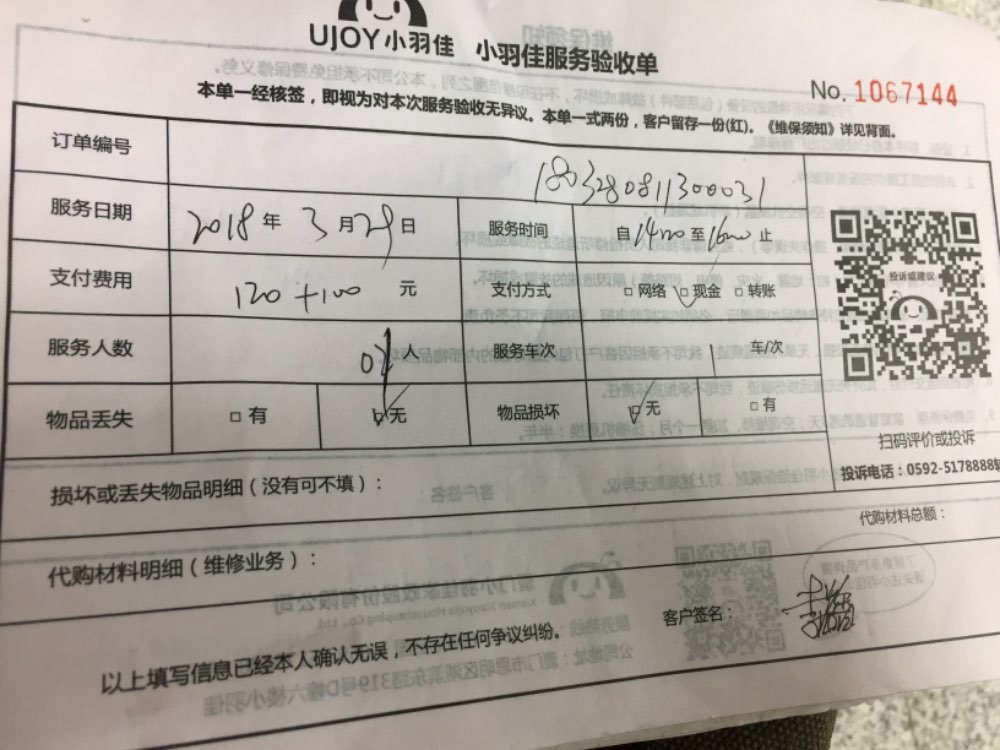 UJOY小羽佳 小羽佳服务验收单
No. 1067144
本单一经核签，即视为对本次服务验收无异议。本单一式两份，客户留存一份(红)。《维保须知》详见背面。
订单编号 180328081130031
服务日期 2018年3月29日 服务时间 自14:00至16:00止
支付费用 120+100 元 支付方式 □网络 □现金 □转账
投诉或建议
服务人数 人 服务车次 车/次
物品丢失 □有 □无 物品损坏 □无 □有
扫码评价或投诉
投诉电话：0592-5178888转
损坏或丢失物品明细（没有可不填）：
代购材料总额：
代购材料明细（维修业务）：
客户签名：
以上填写信息已经本人确认无误，不存在任何争议纠纷。